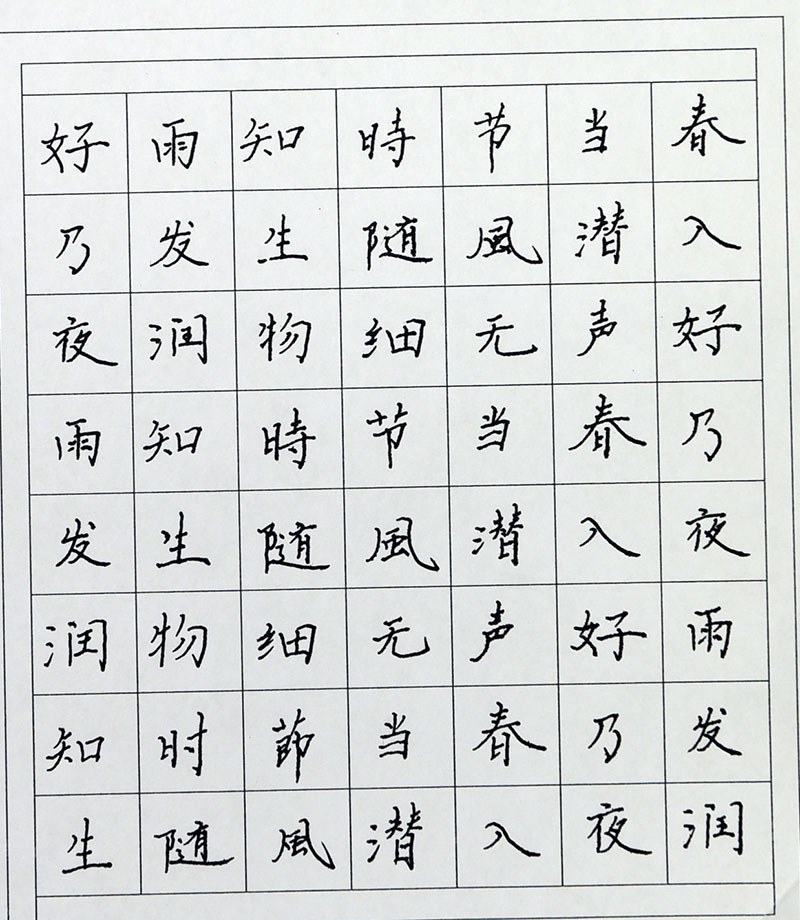 好雨知時节当春
乃发生随風潜入
夜润物细无声好
雨知時节当春乃
发生随風潜入夜
润物细无声好雨
知时節当春乃发
生随風潜入夜润